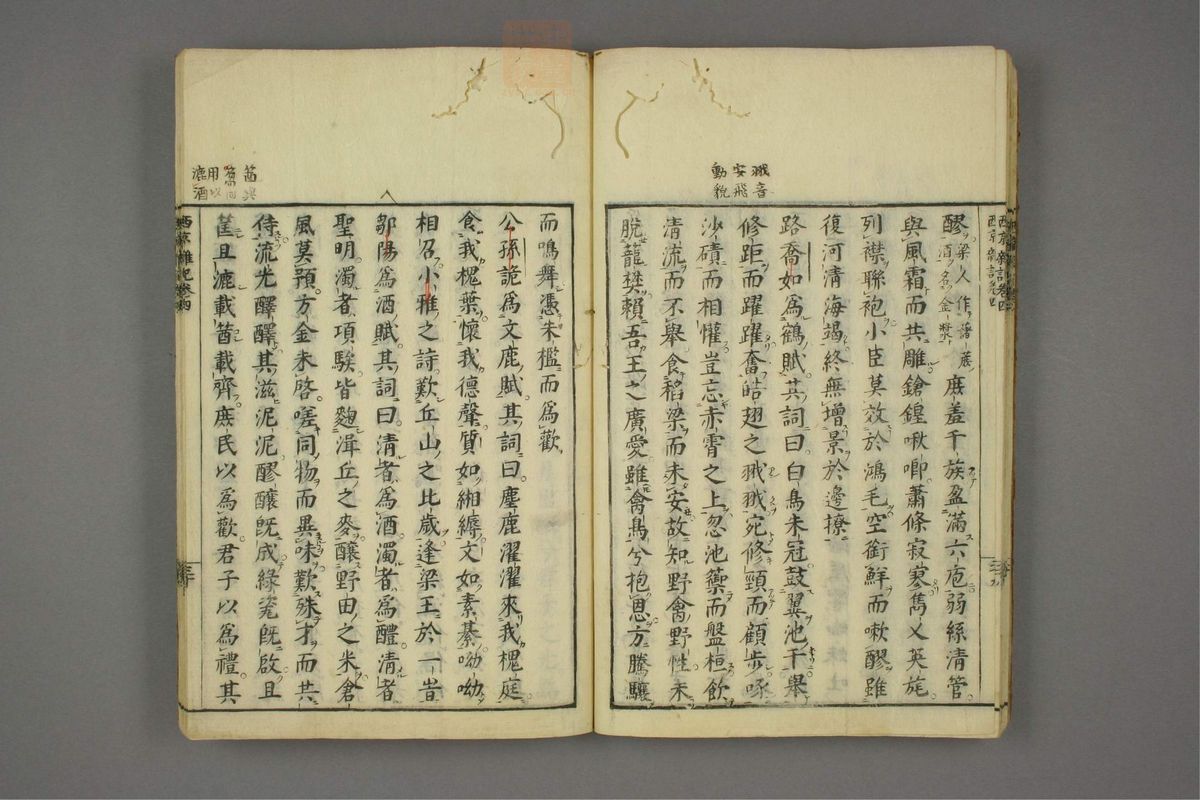 㦸音
安飛
動貌
西京雜記卷四
醪梁人作藷蔗酒名金漿庶羞千族盈滿六庖弱絲清管
與風霜而共雕鎗鍠啾唧蕭條寂寥雋乂英旄
列襟聯袍小臣莫效於鴻毛空銜鮮而嗽醪雖
復河清海竭終無增景於邊撩
路喬如爲鶴賦其詞曰白鳥朱冠鼓翼池干舉
修距而躍躍奮皓翅之㦸㦸宛修頸而顧步啄
沙磧而相懽豈忘赤霄之上忽池籞而盤桓飲
清流而不舉食稻梁而未安故知野禽野性未
脫籠樊賴吾王之廣愛雖禽鳥兮抱恩方騰驤
而鳴舞憑朱檻而爲歡
公孫詭爲文鹿賦其詞曰麀鹿濯濯來我槐庭
食我槐葉懷我德聲質如緗縟文如素綦呦呦
相召小雅之詩歎丘山之比歲逢梁王於一旹
鄒陽爲酒賦其詞曰清者爲酒濁者爲醴清者
聖明濁者頑騃皆麴湒丘之麥釀野田之米倉
風莫預方金未啓嗟同物而異味歎殊才而共
侍流光醳醳其滋泥泥醪釀旣成綠瓷旣啟且
筐且漉載茜載齊庶民以爲歡君子以爲禮其
茜與
篘同
用以
漉酒
西京雜記卷四